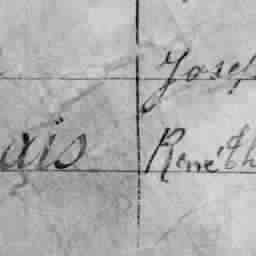 Josep
ais RenéTh